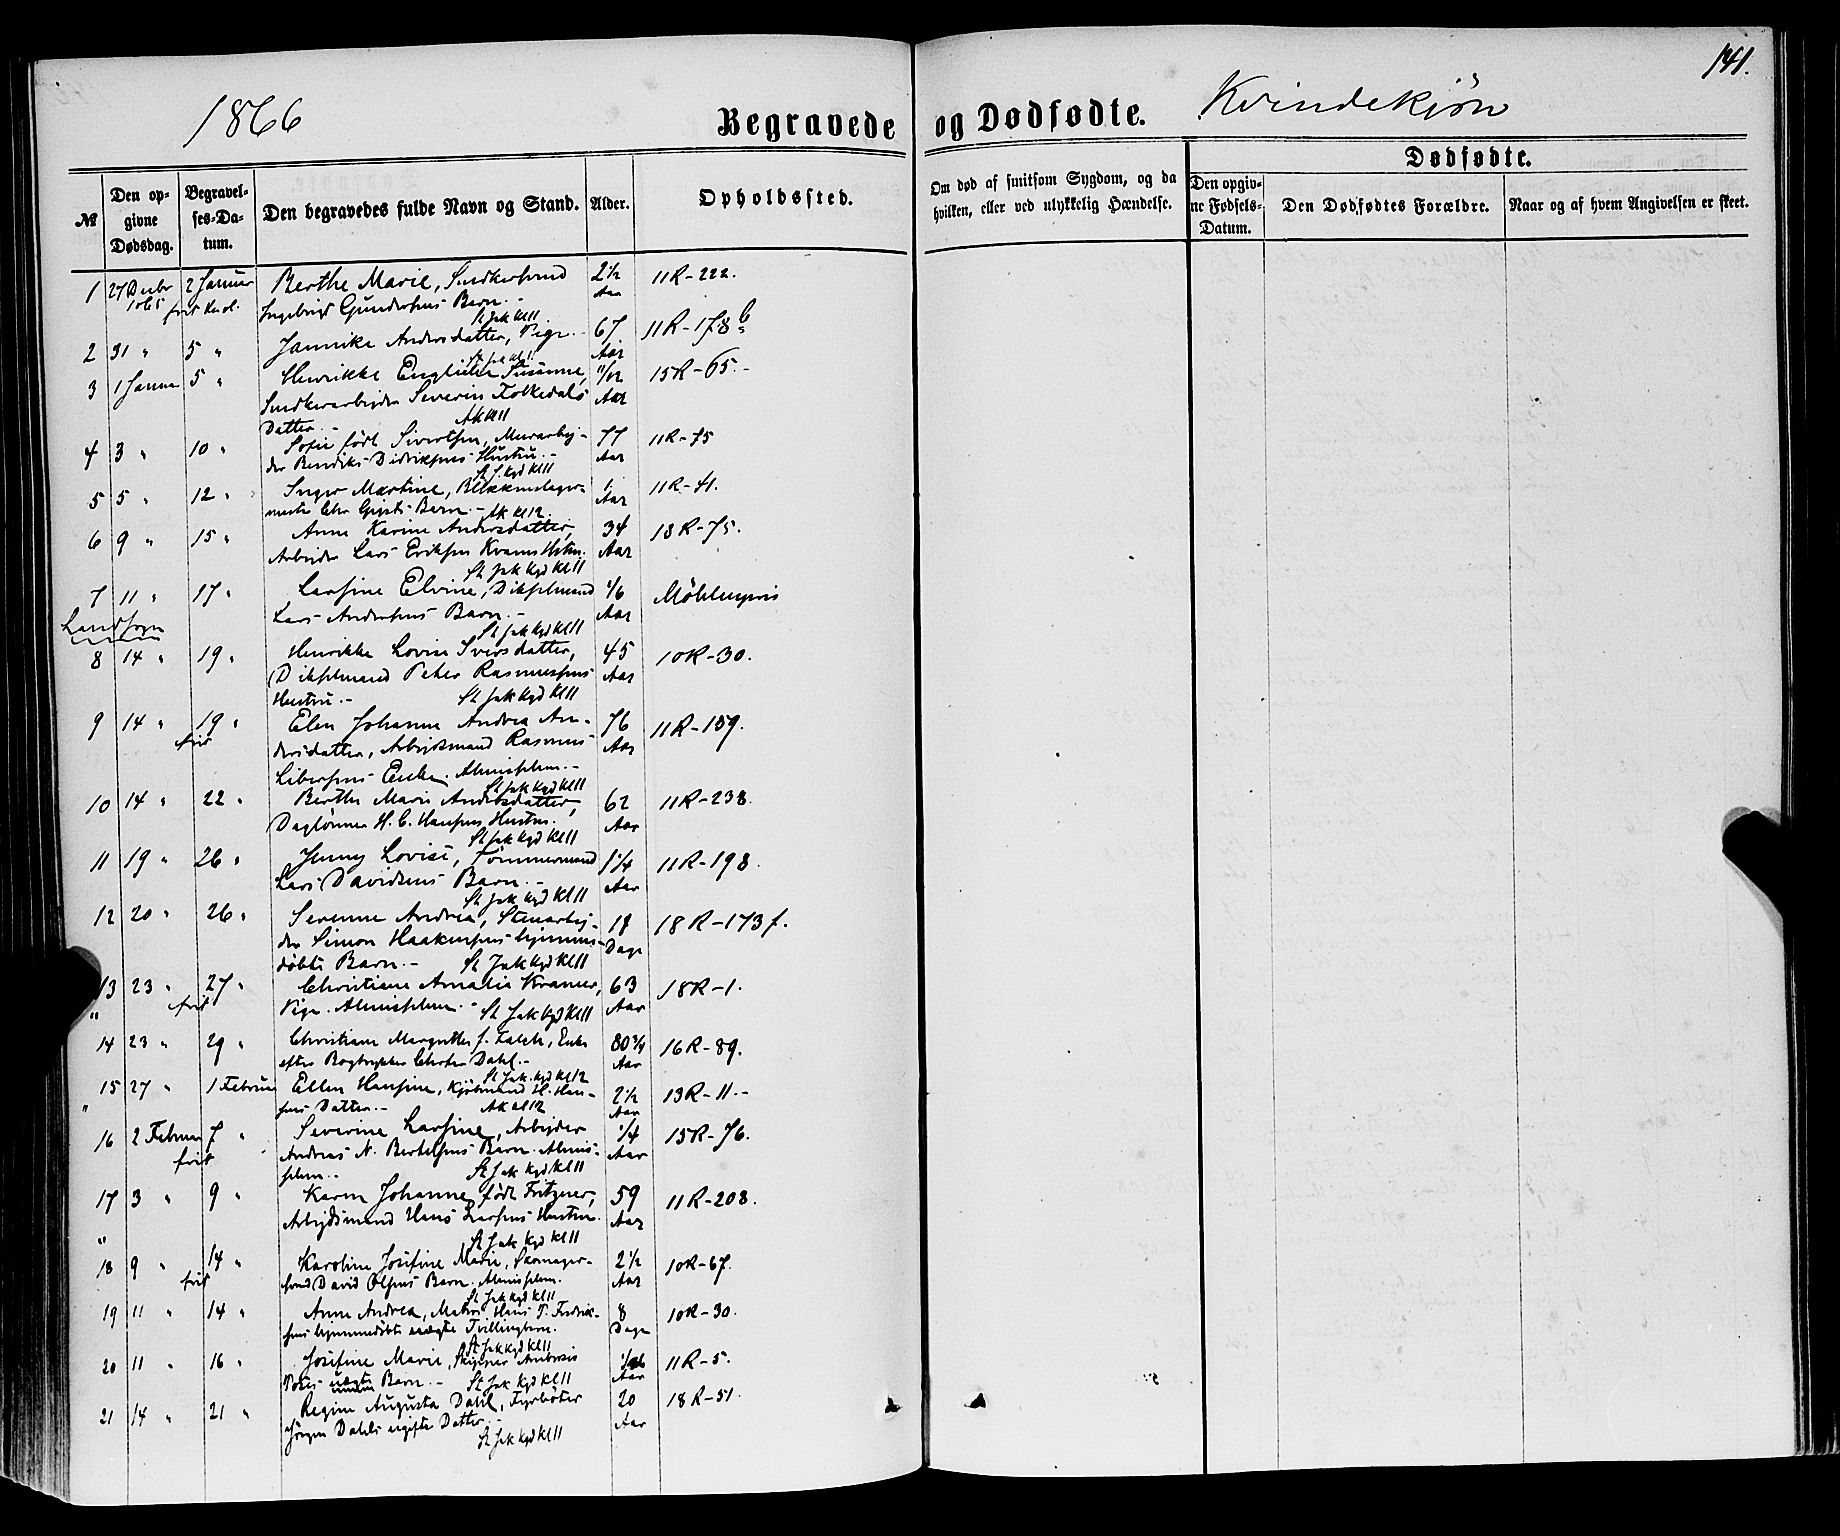 141.
1866
Begravede og Dødfødte. Kvindekjøn
Dødfødte.
№
Den opgivne Dødsdag.
Begravelses-Datum.
Den begravedes fulde Navn og Stand.
Alder.
Opholdssted.
Om død af smitsom Sygdom, og da hvilken, eller ved ulykkelig Hændelse.
Den opgivne Fødsels-Datum.
Den Dødfødtes Forældre.
Naar og af hvem Angivelsen er skeet.
1 27 Decbr 2 Januar Berthe Marie, Snedkersvend 2½ 11R-222.
1865 frit Ingebrigt Gundersens Barn.- Aar
St Jak Kl 11
2 31 " 5 " Jannike Andersdatter, Pige.- 67 11R-178 b
Aar
3 1 Januar 5 " Henrikke Susanne, 11/12 15R-65.-
Snedkerarbeider Severin Folkedals Aar
Datter.- AK Kl 11
4 3 " 10 " Sofie født Sivertsen, Murarbei- 77 11R-75
der Bendik Didriksens Hustru.- Aar
St J. Kgd Kl 11
5 5 " 12 " Inger Martine, Blikkenslager- 1 11R-41.
mester Chr Barn.- AK Kl 12. Aar
6 9 " 15 " Anne Karine Andersdatter, 34 18R-75.
Arbeider Lars Eriksen Kvams Hstru. Aar
St Jak Kgd Kl 11
7 11 " 17 " Larsine Elvine, Dikselmand 1/6 Möhlenpris
Landsogn Lars Andersens Barn.- Aar
St Jak Kgd Kl 11
8 14 " 19 " Henrikke Lovise Iversdatter, 45 10R-30.
Dikselmand Peter Rasmussens Aar
Hustru.- St Jak Kgd Kl 11
9 14 " 19 " Elen Johanne Andrea An- 76 11R-159.
frit dersdatter, Arbeidsmand Rasmus Aar
Libersens Enke. Almisslem.-
St Jak Kgd Kl 11
10 14 " 22 " Berthe Marie Andersdatter, 62 11R-238.
Daglønner H. C. Hansens Hustru. Aar
St Jak Kgd Kl 11
11 19 " 26 " Jenny Lovise, Tømmermand 1¼ 11R-198.
Lars Davidsens Barn.- Aar
St Jak Kgd Kl 11
12 20 " 26 " Serenne Andrea, Stenarbei- 18 18R-173f.
der Simon Haakensens hjemme- Dage
døbte Barn.- St Jak Kgd Kl 11
13 23 " 27 " Christiane Amalia Kramer, 63 18R-1.
" frit Pige. Almisslem.- St Jak Kgd Kl 11 Aar
14 23 " 29 " Christiane Margrethe f. Falch, Enke 80¾ 16R-89.
efter Bogtrykker Dahl.- Aar
St Jak. Kgd Kl 12
15 27 " 1 Februar Ellen Hansine, Kjøbmand H. Han- 2½ 13R-11.-
" sens Datter.- AK Kl 12 Aar
16 2 Februar 7 " Severine Larsine, Arbeider ¼ 15R-76.
frit Andreas N. Bertelsens Barn. Almis- Aar
slem.- St Jak Kgd Kl 11
17 3 " 9 " Karen Johanne født Fritzner, 59 11R-208.
" Arbeidsmand Hans Larsens Hustru. Aar
St Jak Kgd Kl 11
18 9 " 14 " Karoline Josefine Marie, Skomager- 2½ 10R-67.
frit svend David Olsens Barn. Almisslem. Aar
St Jak Kgd Kl 11
19 11 " 14 " Anne Andrea, Matros Hans P. Fredrik- 8 10R-30.
sens hjemmedøbte uægte Tvillingbarn. Dage
St Jak Kgd Kl 11
20 11 " 16 " Josefine Marie, 11R-5.
uægte Barn.- St Jak Kgd Kl 11 Aar
21 14 " 21 " Regine Augusta Dahl, Fyrbøter 20 18R-51.
Jørgen Dahls ugifte Datter.- Aar
St Jak Kgd Kl 11